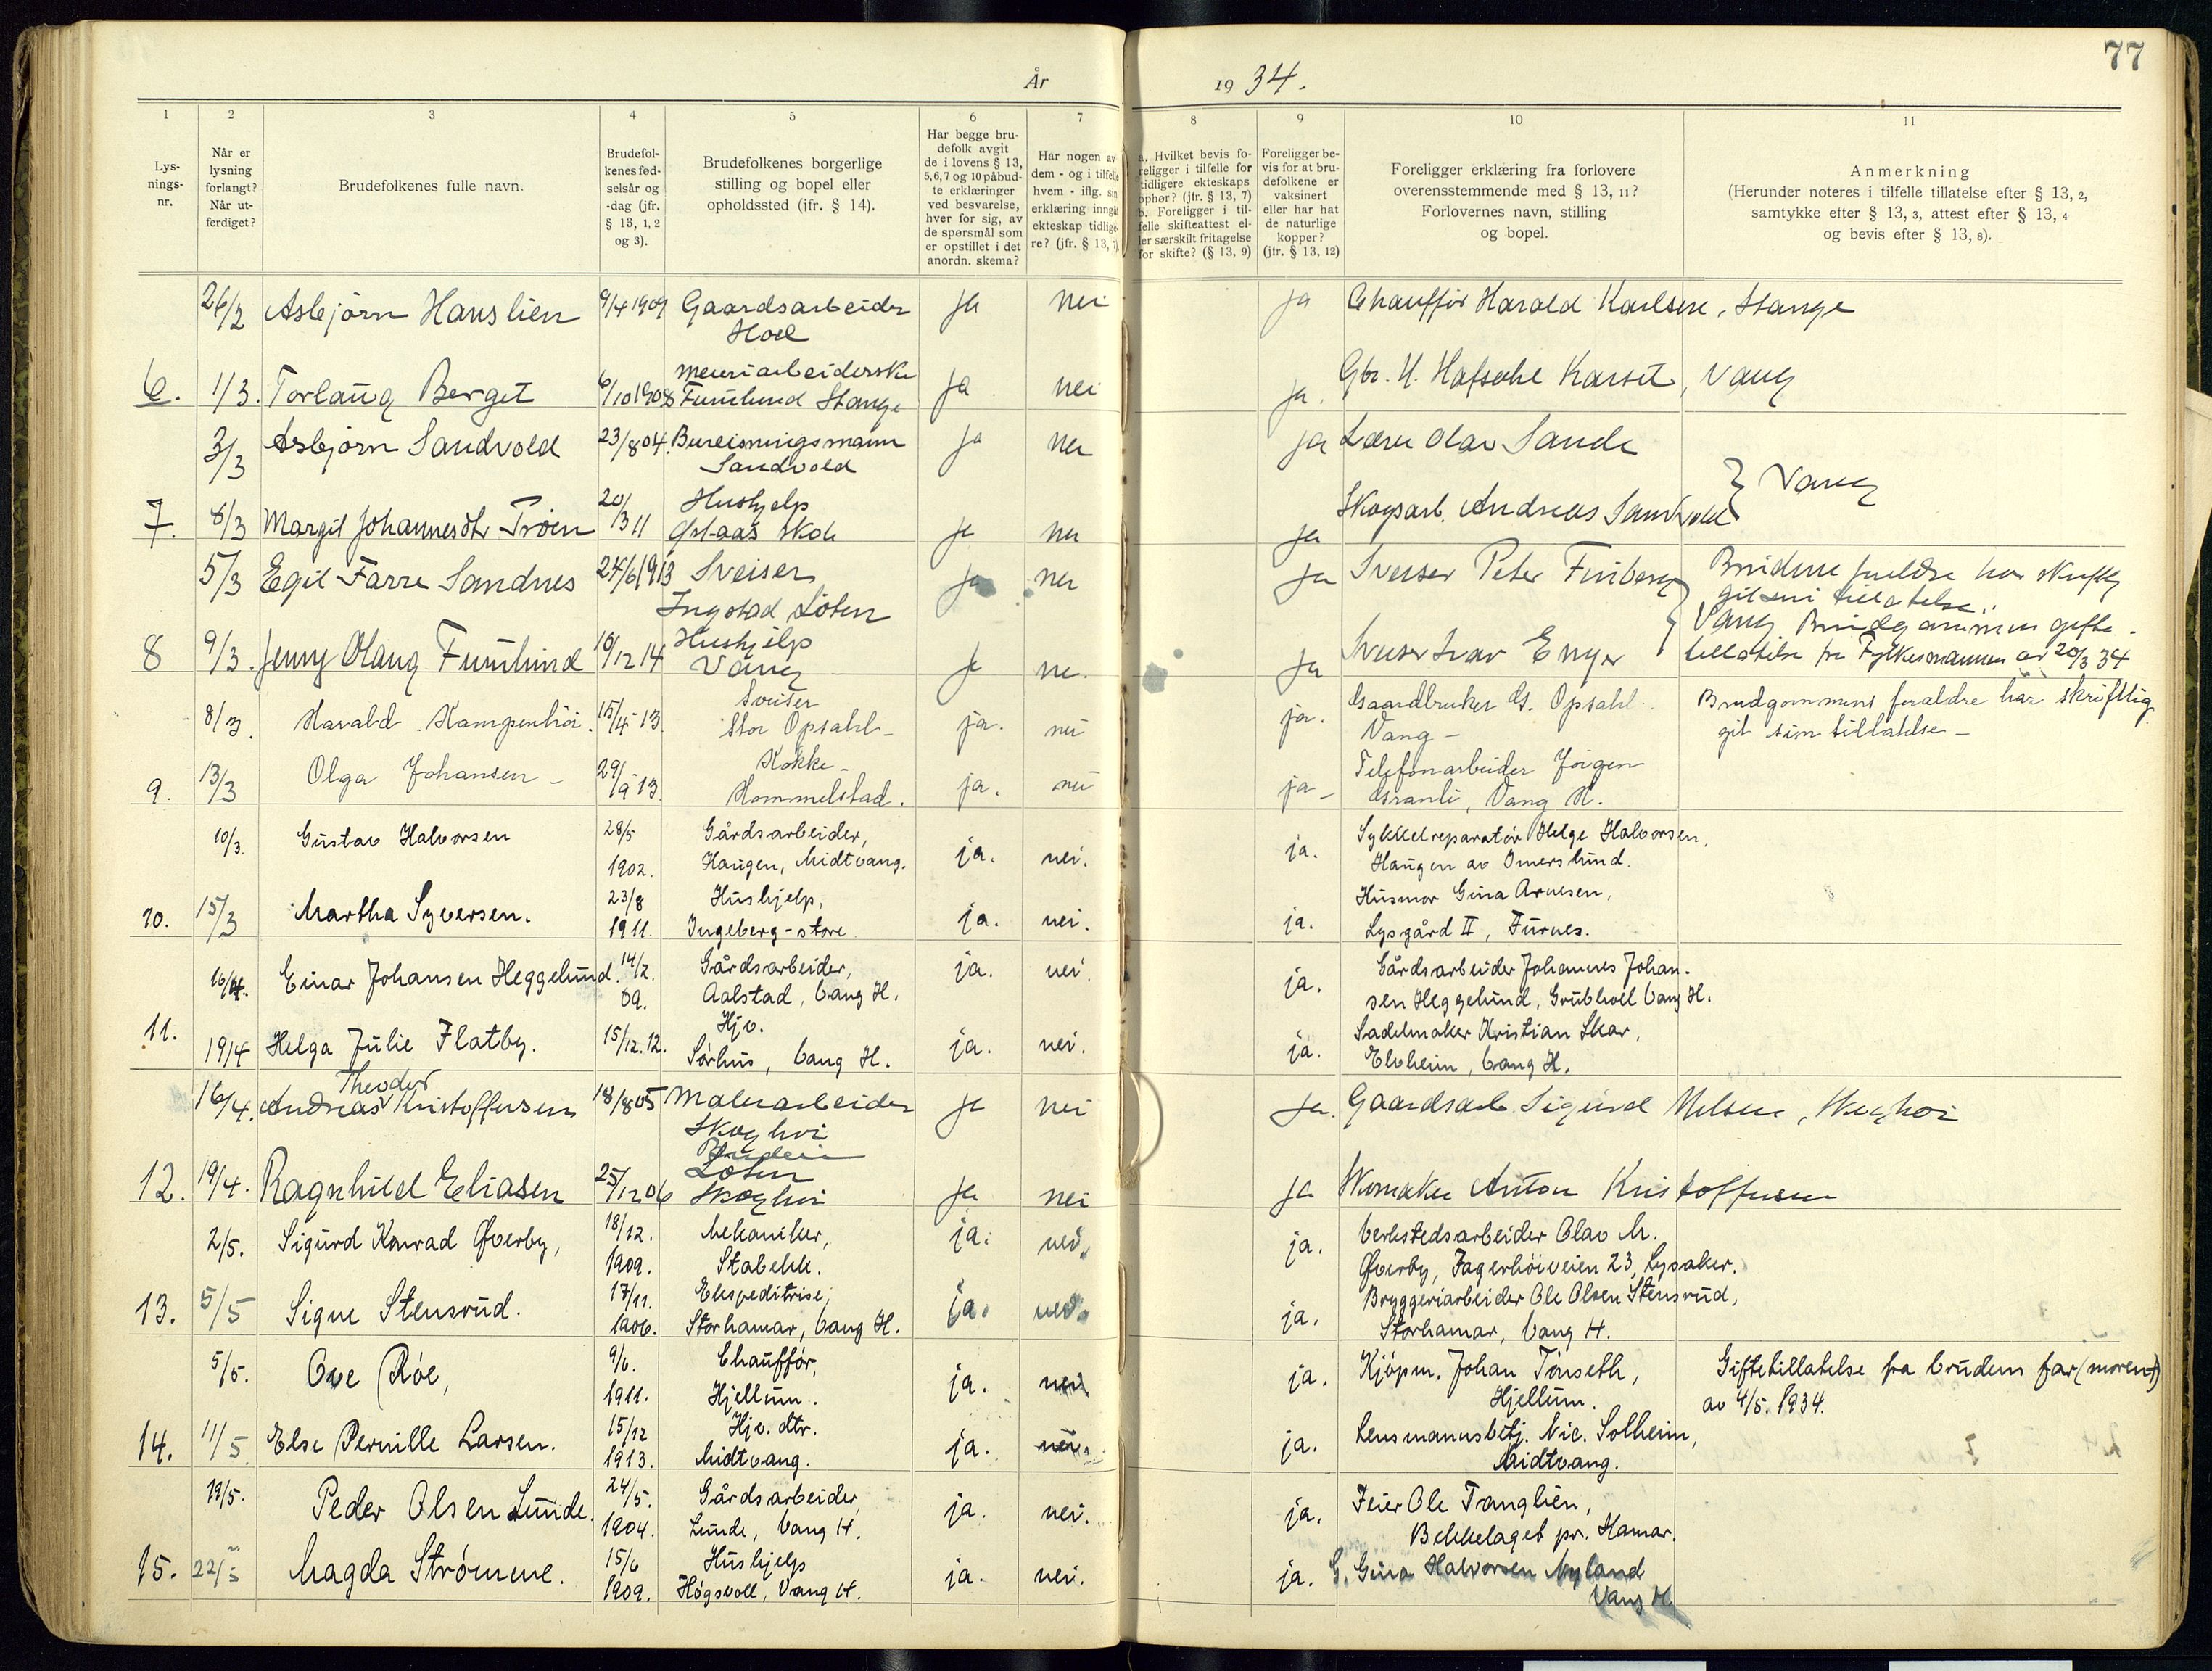 77
År 1934.
1 2 3 4 5 6 7 8 9 10 11
Lysningsnr.
Når er lysning forlangt? Når utferdiget?
Brudefolkenes fulle navn.
Brudefolkenes fødselsår og -dag (jfr. § 13, 1, 2 og 3).
Brudefolkenes borgerlige stilling og bopel eller opholdssted (jfr. § 14).
Har begge brudefolk avgit de i lovens § 13, 5, 6, 7 og 10 påbudte erklæringer ved besvarelse, hver for sig, av de spørsmål som er opstillet i det anordn. skema?
Har nogen av dem - og i tilfelle hvem - iflg. sin erklæring inngåt ekteskap tidligere? (jfr. § 13, 7)
a. Hvilket bevis foreligger i tilfelle for tidligere ekteskaps ophør? (jfr. § 13, 7) b. Foreligger i tilfelle skifteattest eller særskilt fritagelse for skifte? (§ 13, 9)
Foreligger bevis for at brudefolkene er vaksinert eller har hat de naturlige kopper? (jfr. § 13, 12)
Foreligger erklæring fra forlovere overensstemmende med § 13, 11? Forlovernes navn, stilling og bopel.
Anmerkning
(Herunder noteres i tilfelle tillatelse efter § 13, 2, samtykke efter § 13, 3, attest efter § 13, 4 og bevis efter § 13, 8).
26/2 Asbjørn Hanslien 9/4 1909 Gaardsarbeider ja nei ja Chauffør Harald Karlsen, Stange
Hoel
6. 1/3. Torlaug Berget 6/10 1908 Meieriarbeiderske ja nei ja. Gbr. H. Hafsahl Karset, Vang
Furulund Stange
3/3 Asbjørn Sandvold 23/8 04. Bureisningsmann ja nei ja Lærer Olav Sande
Sandvold
7. 8/3 Margit Johannesdtr Trøen 20/3 11 Hushjelp ja nei ja Skogsarb. Andreas Sandvold } Vang
skole
5/3 Egil Farre Sandnes 24/6 1913 Sveiser ja nei ja Sveiser Peter Finberg Brudens foreldre har skriftlig
Ingstad Løten git sin tillatelse.
8 9/3. Jenny Olaug Furulund 10/12 14 Hushjelp ja nei. ja Sveiser Ivar Enger } Vang Brudgommen gifte-
Vang tillatelse fra Fylkesmannen av 20/3 34
8/3. Harald Kampenhøi. 15/4-13. Sveiser ja. nei ja. Gaardbruker G. Opsahl. Brudgommens foreldre har skriftlig
Stor Opsahl- Vang- git sin tillatelse-
9. 13/3 Olga Johansen- 29/9-13. Kokke- ja. nei ja- Telefonarbeider Jörgen
Hommelstad. Granli, Vang H.
10/3. Gustav Halvorsen 28/5 1902. Gårdsarbeider, ja. nei. ja. Sykkelreparatør Helge Halvorsen,
Haugen, Midtvang. Haugen av Imerslund.
10. 15/3 Martha Syversen. 23/8 1911. Hushjelp, ja. nei. ja. Husmor Gina Arnesen,
Ingeberg-store Lysgård II, Furnes.
16/4. Einar Johansen Heggelund. 14/2. 09. Gårdsarbeider, ja. nei. ja. Gårdsarbeider Johannes Johan-
Aalstad, Vang H. sen Heggelund, Grubhoel Vang H.
11. 19/4 Helga Julie Flatby. 15/12.12. Hjv. ja. nei. ja. Sadelmaker Kristian Skar,
Sørhus, Vang H. Elvheim, Vang H.
16/4. Andreas Theodor Kristoffersen 18/8 05 Malerarbeider ja nei ja. Gaardsarb. Sigurd Nilsen, Skoghøi
Skoghøi
12. 19/4. Ragnhild Eliasen 25/12 06 Løten ja nei ja Skomaker Anton Kristoffersen
Skoghøi
2/5. Sigurd Konrad Øverby, 18/12. 1909. Mekaniker, ja. nei. ja. Verkstedsarbeider Olav M.
Stabekk. Øverby, Fagerhöiveien 23, Lysaker.
13. 5/5 Signe Stensrud. 17/11. 1906. Ekspeditrise, ja. nei. ja. Bryggeriarbeider Ole Olsen Stensrud,
Storhamar, Vang H. Storhamar, Vang H.
5/5. Ove Røe, 9/6. 1911. Chauffør, ja. nei. ja. Kjöpm. Johan Tönseth, Giftetillatelse fra brudens far (moren †)
Hjellum. Hjellum. av 4/5. 1934.
14. 11/5 Else Pernille Larsen. 15/12 1913. Hjv. dtr. ja. nei. ja. Lensmannsbetj. Nic. Solheim,
Midtvang. Midtvang.
19/5. Peder Olsen Lunde. 24/5. 1904. Gårdsarbeider, ja. nei. ja. Feier Ole Tanglien,
Lunde, Vang H. Bekkelaget pr. Hamar.
15. 22/5 Magda Strømme. 15/6 1909. Hushjelp ja. nei. ja. G. Gina Halvorsen Nyland
Høgsvoll, Vang H. Vang H.